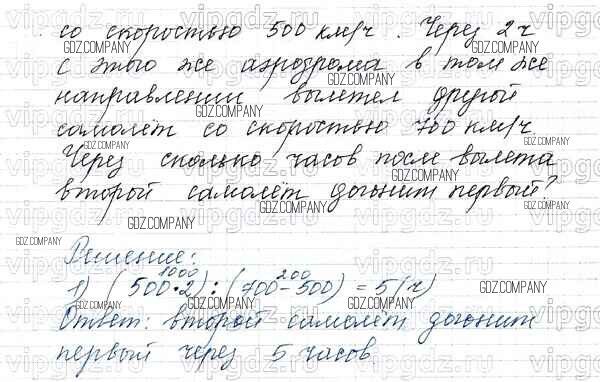 со скоростью 500 км/ч. Через 2 ч
с этого же аэродрома в том же
направлении вылетел другой
самолёт со скоростью 700 км/ч.
Через сколько часов после вылета
второй самолёт догонит первый?
Решение:
1000 200
1) (500·2):(700-500) = 5(ч)
Ответ: второй самолёт догонит
первый через 5 часов
vipgdz.ru
GDZ.COMPANY